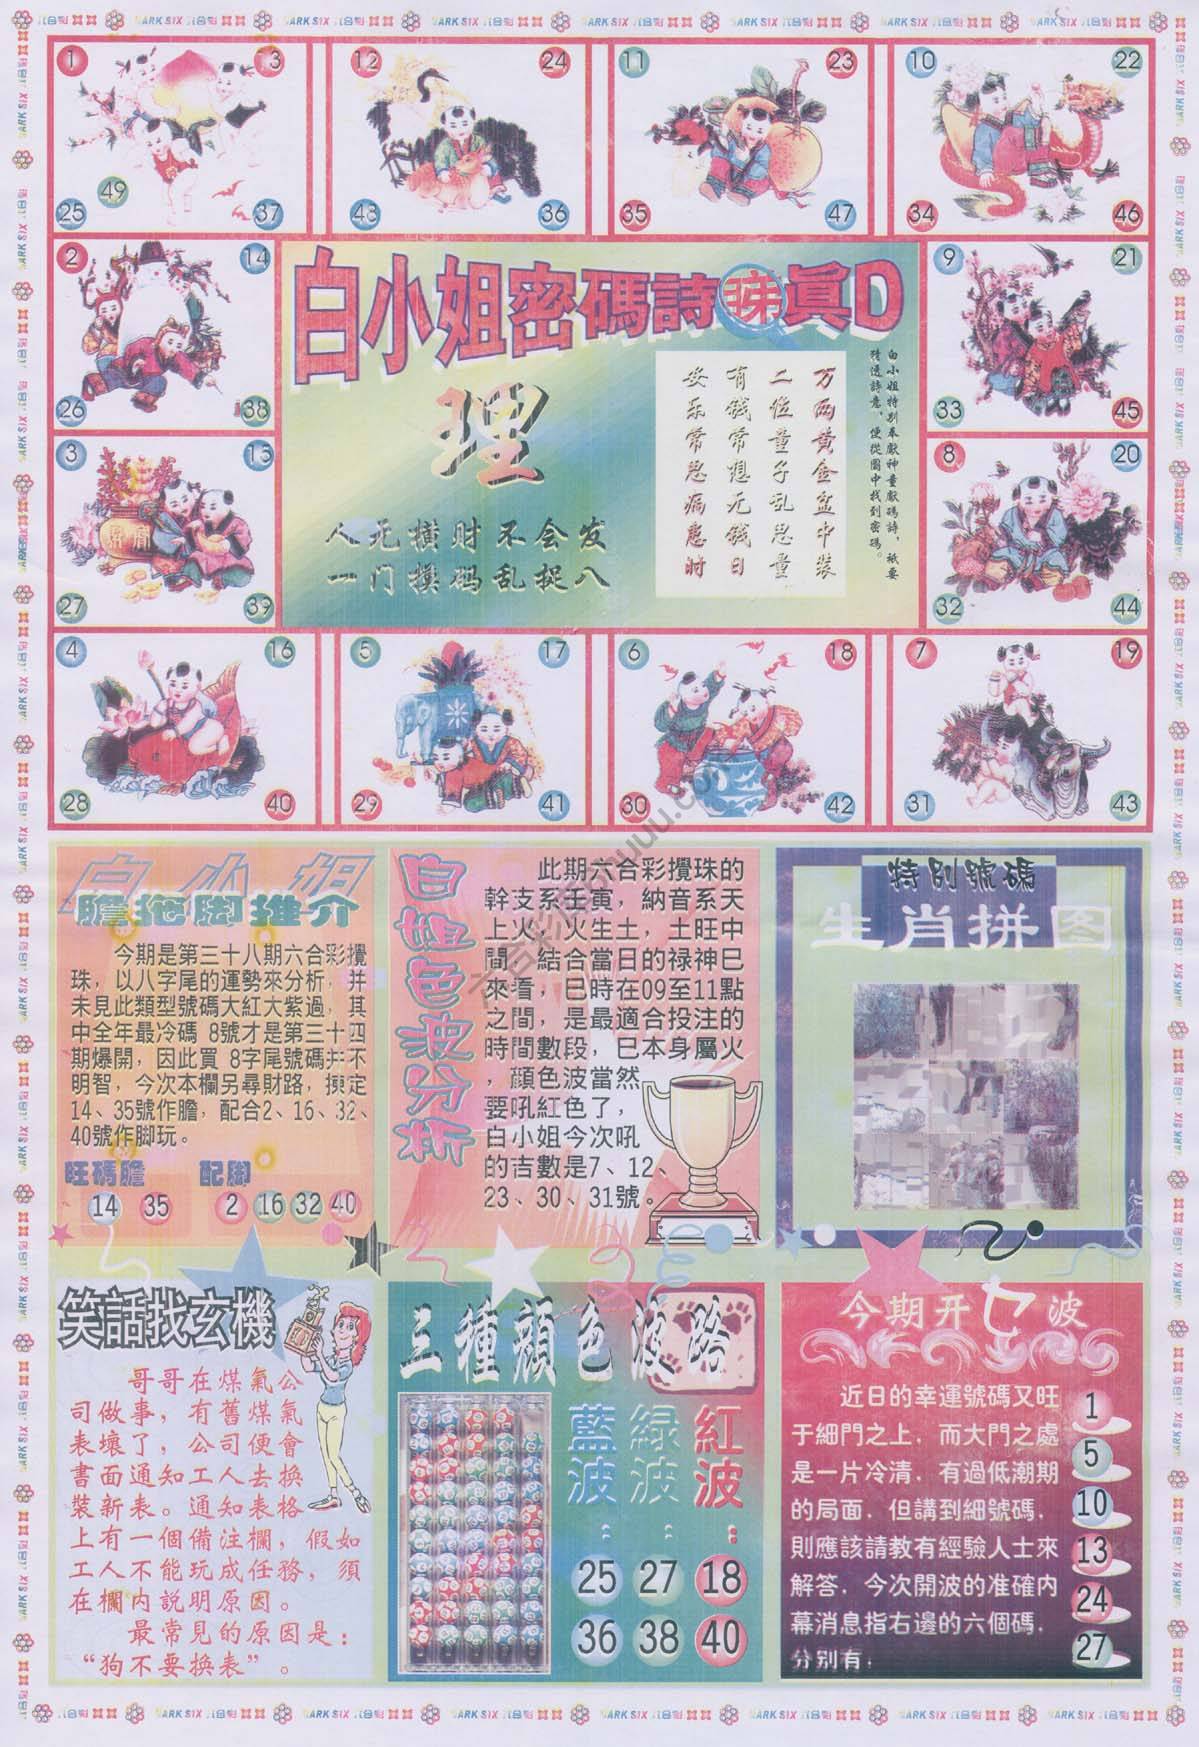 1 13 12 24 11 23 10 22
49
25 37 48 36 35 47 34 46
2 14
26 38
9 21
33 45
3 15
27 39
8 20
32 44
白小姐密碼詩
真D
理
人无横财不会发
一门摸码乱捉八
万两黄金盆中装
二位童子乱思量
有钱常想无钱日
安乐常思病患时
白小姐特别奉獻神童獻碼詩，衹要
猜透詩意，便從圖中找到密碼。
4 16 5 17 6 18 7 19
28 40 29 41 30 42 31 43
白小姐
膽拖脚推介
今期是第三十八期六合彩攪
珠，以八字尾的運勢來分析，并
未見此類型號碼大紅大紫過，其
中全年最冷碼 8號才是第三十四
期爆開，因此買 8字尾號碼并不
明智，今次本欄另尋財路，揀定
14、35號作膽，配合2、16、32、
40號作脚玩。
旺碼膽 配脚
14 35 2 16 32 40
白姐色波分析
此期六合彩攪珠的
幹支系壬寅，納音系天
上火，火生土，土旺中
間，結合當日的禄神巳
來看，巳時在09至11點
之間，是最適合投注的
時間數段，巳本身屬火
，顔色波當然
要吼紅色了，
白小姐今次吼
的吉數是7、12、
23、30、31號。
特别號碼
生肖拼图
笑話找玄機
哥哥在煤氣公
司做事，有舊煤氣
表壞了，公司便會
書面通知工人去换
裝新表。通知表格
上有一個備注欄，假如
工人不能玩成任務，須
在欄内説明原因。
最常見的原因是：
“狗不要换表”。
三種顔色波路
藍波： 緑波： 紅波：
25 27 18
36 38 40
今期开 波
近日的幸運號碼又旺
于細門之上，而大門之處
是一片冷清，有過低潮期
的局面，但講到細號碼，
則應該請教有經驗人士來
解答，今次開波的准確内
幕消息指右邊的六個碼，
分别有：
1
5
10
13
24
27